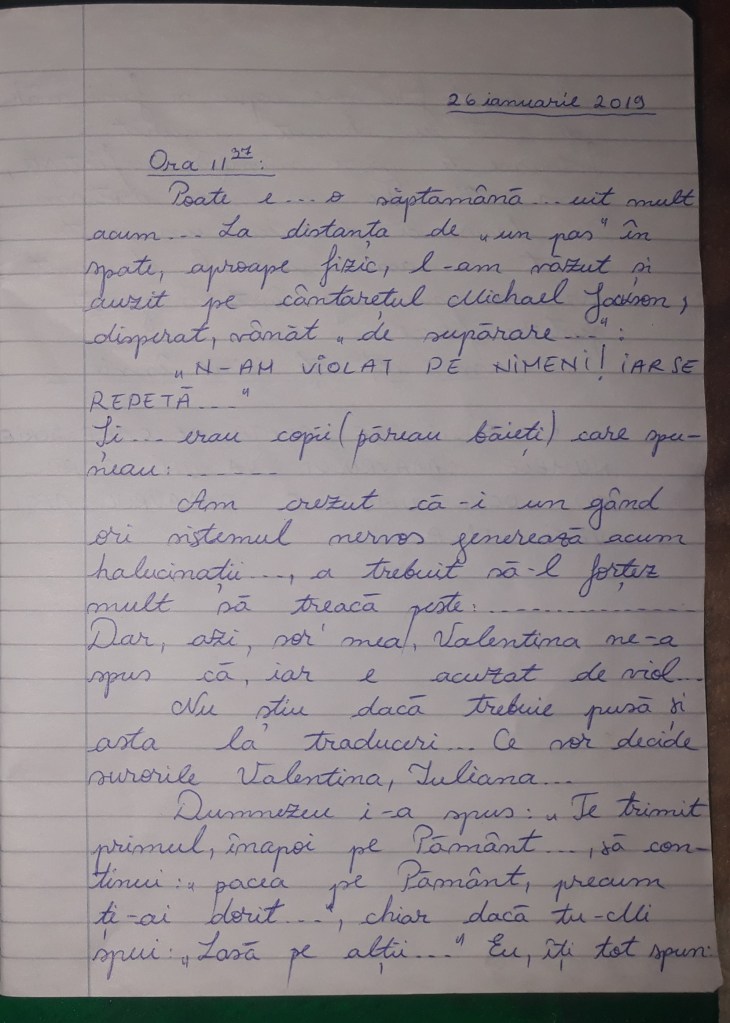 26 ianuarie 2019
Ora 11 37:
Poate e... o săptămână... uit mult
acum... La distanța de „un pas" în
spate, aproape fizic, l-am văzut și
auzit pe cântarețul Michael Jackson,
disperat, vânăt „de supărare...":
„N-AM VIOLAT PE NIMENI! IAR SE
REPETĂ...."
Și... erau copii (păreau băieți) care spu-
neau: .......
Am crezut că-i un gând
ori sistemul nervos generează acum
halucinații..., a trebuit să-l forțez
mult să treacă peste: ................
Dar, azi, sor' mea, Valentina ne-a
spus că, iar e acuzat de viol...
Nu știu dacă trebuie pusă și
asta la traduceri... Ce vor decide
surorile Valentina, Iuliana...
Dumnezeu i-a spus: „Te trimit
primul, înapoi pe Pământ..., să con-
tinui: „pacea pe Pământ, precum
ți-ai dorit...", chiar dacă tu-Mi
spui: „Lasă pe alții..." Eu, îți tot spun: